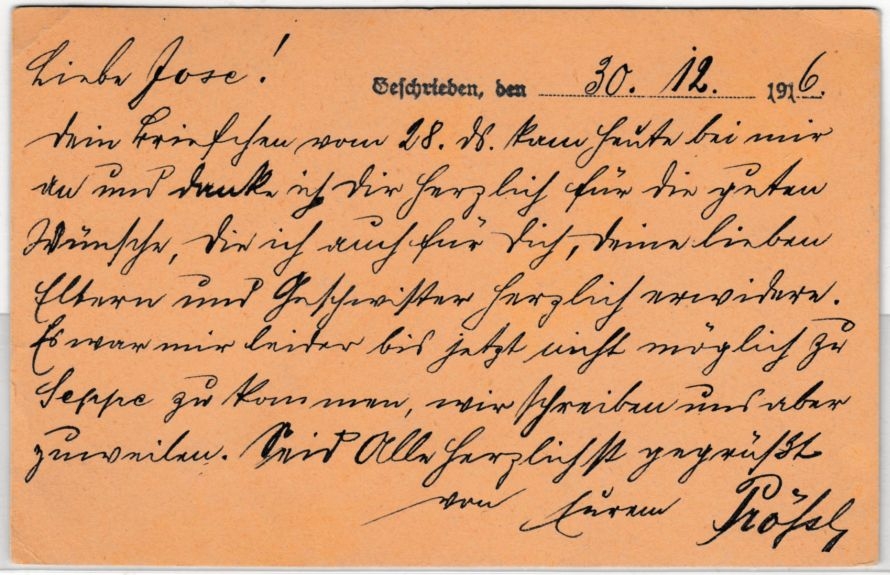 Liebe Jose!
Geschrieben, den 30. 12. 1916.
Dein Briefchen vom 28. ds. kam heute bei mir
an und danke ich Dir herzlich für die guten
Wünsche, die ich auch für Dich, Deine lieben
Eltern und Geschwister herzlich erwidere.
Es war mir leider bis jetzt nicht möglich zu
Seppe zu kommen, wir schreiben uns aber
zuweilen. Seid Alle herzlichst gegrüßt
von Eurem